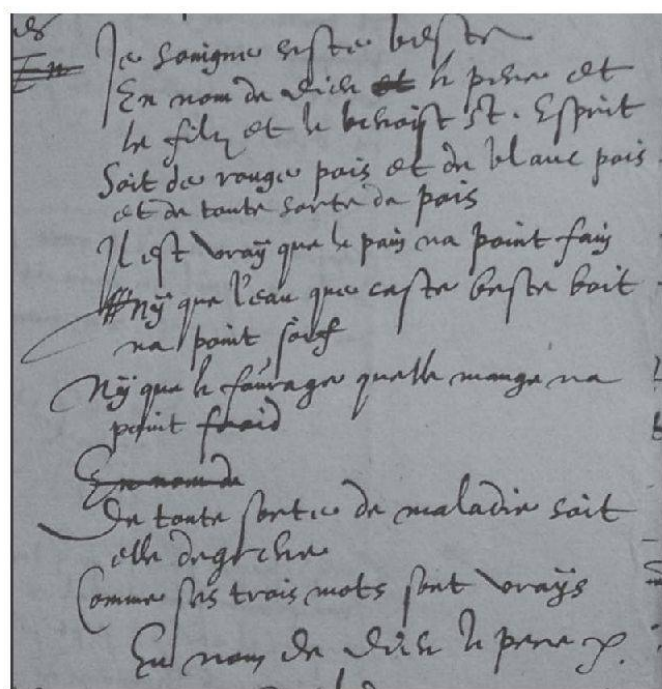 Je soaigne ceste beste
En nom de Dieu et le pere et
le filz et le benoist st. Esprit
Soit de rouge pois et de blanc pois
et de toute sorte de pois
Il est vraÿ que le pain na point fain
Nÿ que l'eau que ceste beste boit
na point soif
Nÿ que le fourage quelle mange na
point froid
En nom de
De toute sorte de maladie soit
elle
Comme ses trois mots sont vraÿs
En nom de Dieu le pere